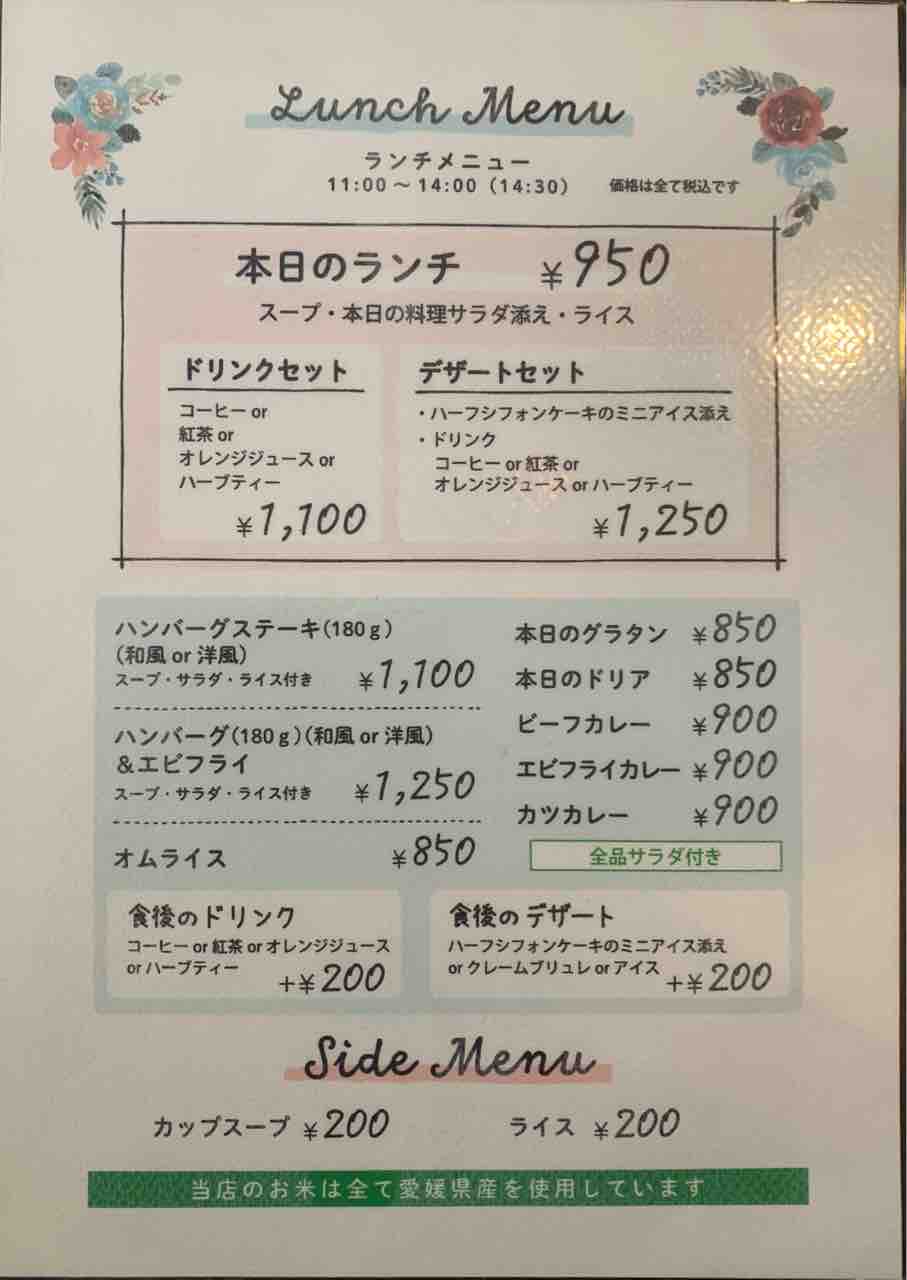 Lunch Menu
ランチメニュー
11:00〜14:00（14:30） 価格は全て税込です
本日のランチ ¥950
スープ・本日の料理サラダ添え・ライス
ドリンクセット
コーヒー or
紅茶 or
オレンジジュース or
ハーブティー
¥1,100
デザートセット
・ハーフシフォンケーキのミニアイス添え
・ドリンク
コーヒー or 紅茶 or
オレンジジュース or ハーブティー
¥1,250
ハンバーグステーキ(180g)
(和風 or 洋風)
スープ・サラダ・ライス付き ¥1,100
ハンバーグ(180g)(和風 or 洋風)
&エビフライ
スープ・サラダ・ライス付き ¥1,250
オムライス ¥850
本日のグラタン ¥850
本日のドリア ¥850
ビーフカレー ¥900
エビフライカレー ¥900
カツカレー ¥900
全品サラダ付き
食後のドリンク
コーヒー or 紅茶 or オレンジジュース
or ハーブティー +¥200
食後のデザート
ハーフシフォンケーキのミニアイス添え
or クレームブリュレ or アイス +¥200
Side Menu
カップスープ ¥200 ライス ¥200
当店のお米は全て愛媛県産を使用しています